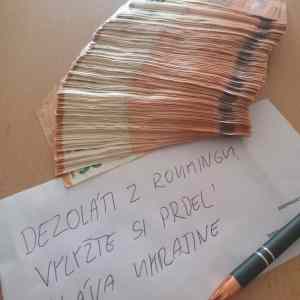 DEZOLÁTI Z ROUMINGU,
VYLYŽTE SI PRDEL'
SLÁVA UKRAJINE